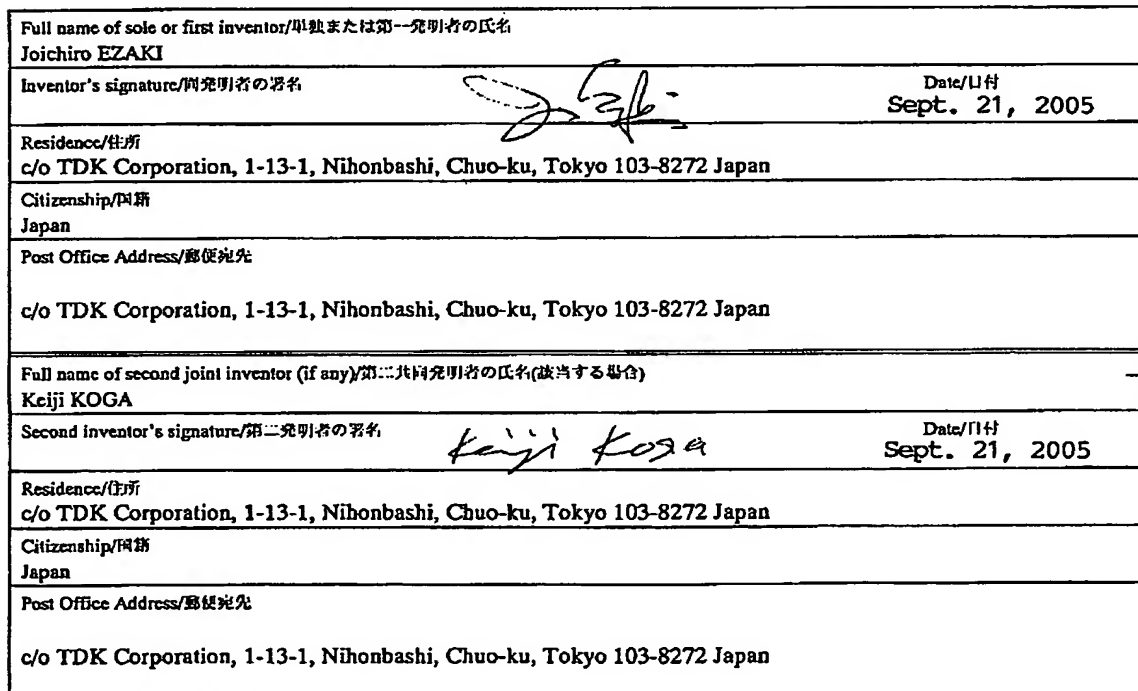 Full name of sole or first inventor/単独または第一発明者の氏名
Joichiro EZAKI
Inventor's signature/同発明者の署名
Date/日付
Sept. 21, 2005
Residence/住所
c/o TDK Corporation, 1-13-1, Nihonbashi, Chuo-ku, Tokyo 103-8272 Japan
Citizenship/国籍
Japan
Post Office Address/郵便宛先
c/o TDK Corporation, 1-13-1, Nihonbashi, Chuo-ku, Tokyo 103-8272 Japan
Full name of second joint inventor (if any)/第二共同発明者の氏名(該当する場合)
Keiji KOGA
Second inventor's signature/第二発明者の署名
Keiji Koga
Date/日付
Sept. 21, 2005
Residence/住所
c/o TDK Corporation, 1-13-1, Nihonbashi, Chuo-ku, Tokyo 103-8272 Japan
Citizenship/国籍
Japan
Post Office Address/郵便宛先
c/o TDK Corporation, 1-13-1, Nihonbashi, Chuo-ku, Tokyo 103-8272 Japan